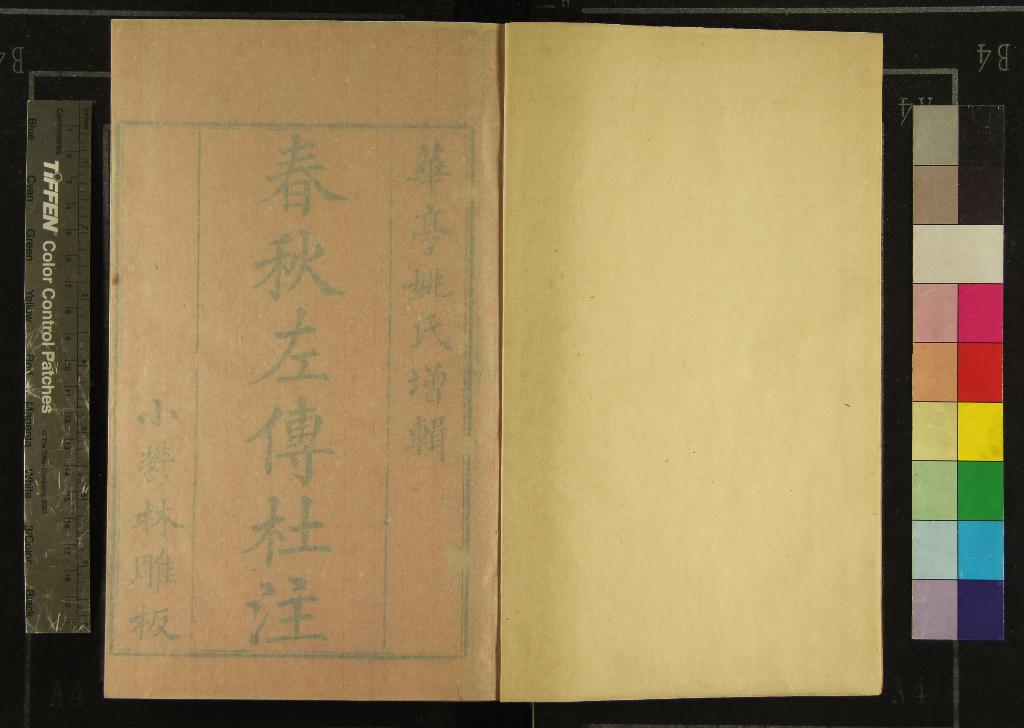 華亭姚氏增輯
春秋左傳杜注
小鬱林雕板
B4
B4
A4
A4
A4
TIFFEN Color Control Patches
Centimetres
Blue Cyan Green Yellow Red Magenta White 3/Color Black